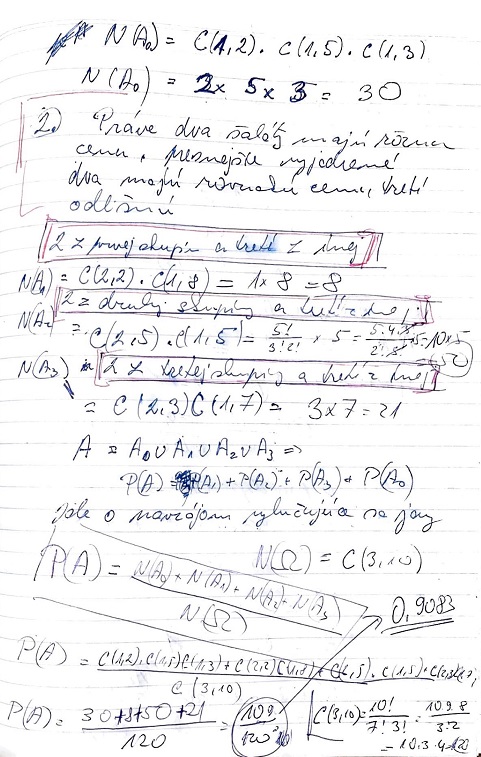 N(A₀) = C(1,2) . C(1,5) . C(1,3)
N(A₀) = 2 x 5 x 3 = 30
2.) Práve dva šaláty majú rôznu
cenu, presnejšie vyjadrené
dva majú rovnakú cenu, tretí
odlišnú
2 z prvej skupiny a tretí z inej
N(A₁) = C(2,2) . C(1,8) = 1x8 = 8
2 z druhej skupiny a tretí z inej
N(A₂ = C(2,5) . C(1,5) = 5!/3!2! x 5 = 5.4.3/2.3 .5 = 10x5
= 50
N(A₃) 2 z tretej skupiny a tretí z inej
= C(2,3)C(1,7) = 3x7 = 21
A = A₀∪A₁∪A₂∪A₃ =>
P(A) = P(A₁) + P(A₂) + P(A₃) + P(A₀)
ide o navzájom vylučujúce sa javy
N(Ω) = C(3,10)
P(A) = N(A₀) + N(A₁) + N(A₂) + N(A₃) / N(Ω)
0,9083
P(A) = C(1,2).C(1,5)C(1,3) + C(2,2)C(1,8) + C(2,5).C(1,5) + C(2,3) / C(3,10)
P(A) = 30+8+50+21 / 120 109/120
C(3,10) = 10!/7!3! = 10.9.8/3.2
= 10.3.4 = 120